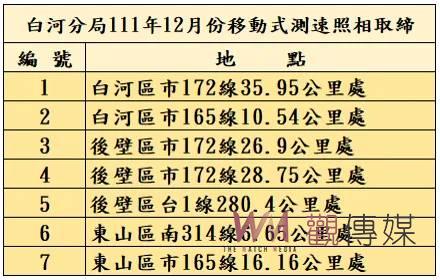 白河分局111年12月份移動式測速照相取締
編號 地點
1 白河區市172線35.95公里處
2 白河區市165線10.54公里處
3 後壁區市172線26.9公里處
4 後壁區市172線28.75公里處
5 後壁區台1線280.4公里處
6 東山區南314線6.65公里處
7 東山區市165線16.16公里處
WM 觀傳媒
THE WATCH MEDIA